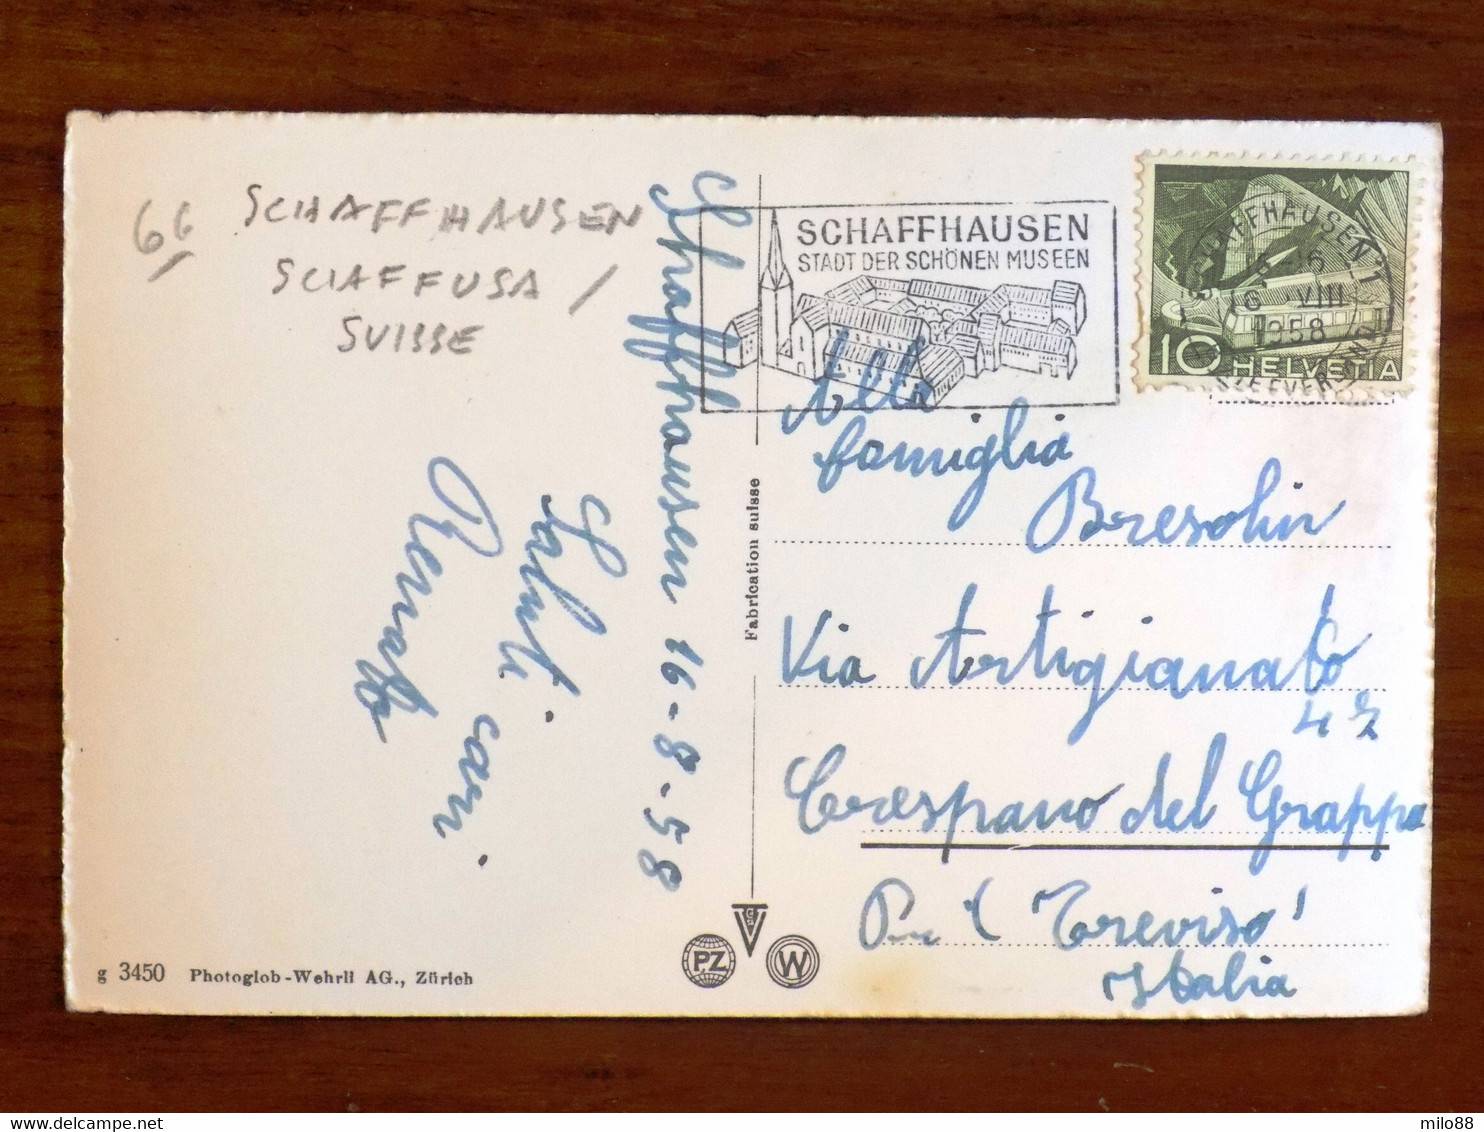 66
SCHAFFHAUSEN
SCIAFFUSA /
SUISSE
Schaffhausen 16-8-58
Saluti cari
Renato
SCHAFFHAUSEN
STADT DER SCHÖNEN MUSEEN
SCHAFFHAUSEN 1
16. VIII
1958
10 HELVETIA
Alla
famiglia
Bresolin
Via Artigianato
42
Crespano del Grappa
Treviso
Italia
Fabrication suisse
PZ
W
g 3450 Photoglob-Wehrli AG., Zürich
milo88